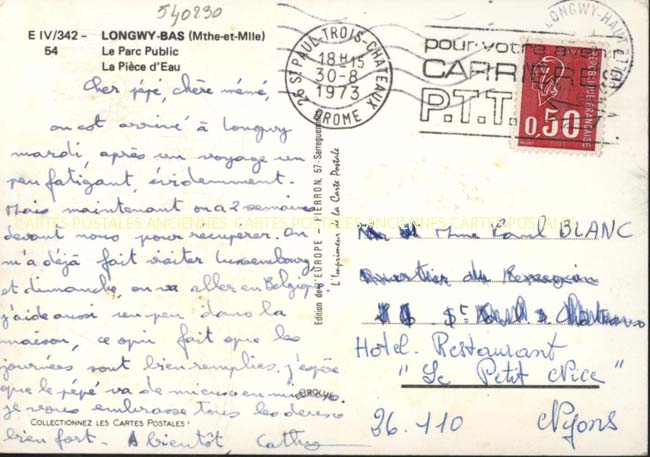 540230
E IV/342 - LONGWY-BAS (Mthe-et-Mlle)
54 Le Parc Public
La Pièce d'Eau
Cher pépé, chère mémé
on est arrivé à Longwy
mardi, après un voyage un
peu fatigant, évidemment.
Mais maintenant on a 2 semaines
devant nous pour récupérer. On
m'a déjà fait visiter Luxembourg
et dimanche, on va aller en Belgique
j'aide aussi un peu dans la
maison, ce qui fait que les
journées sont bien remplies. j'espère
que le pépé va de mieux en mieux
je vous embrasse tous les deux
bien fort. A bientôt, Cathy
COLLECTIONNEZ LES CARTES POSTALES !
Edition de l'EUROPE - PIERRON, 57-Sarreguemines
L'Imprimeur de la Carte Postale
EUROLUXE
26 ST PAUL-TROIS-CHATEAUX
18H15
30-8
1973
DROME
pour votre avenir
CARRIERE
P.T.T.
LONGWY-HAUT
0,50
REPUBLIQUE FRANÇAISE
CARTES POSTALES ANCIENNES CARTES POSTALES ANCIENNES CARTES POSTALES
Mme BLANC
Quartier du
St
Hotel-Restaurant
"Le Petit Nice"
26-110 Nyons